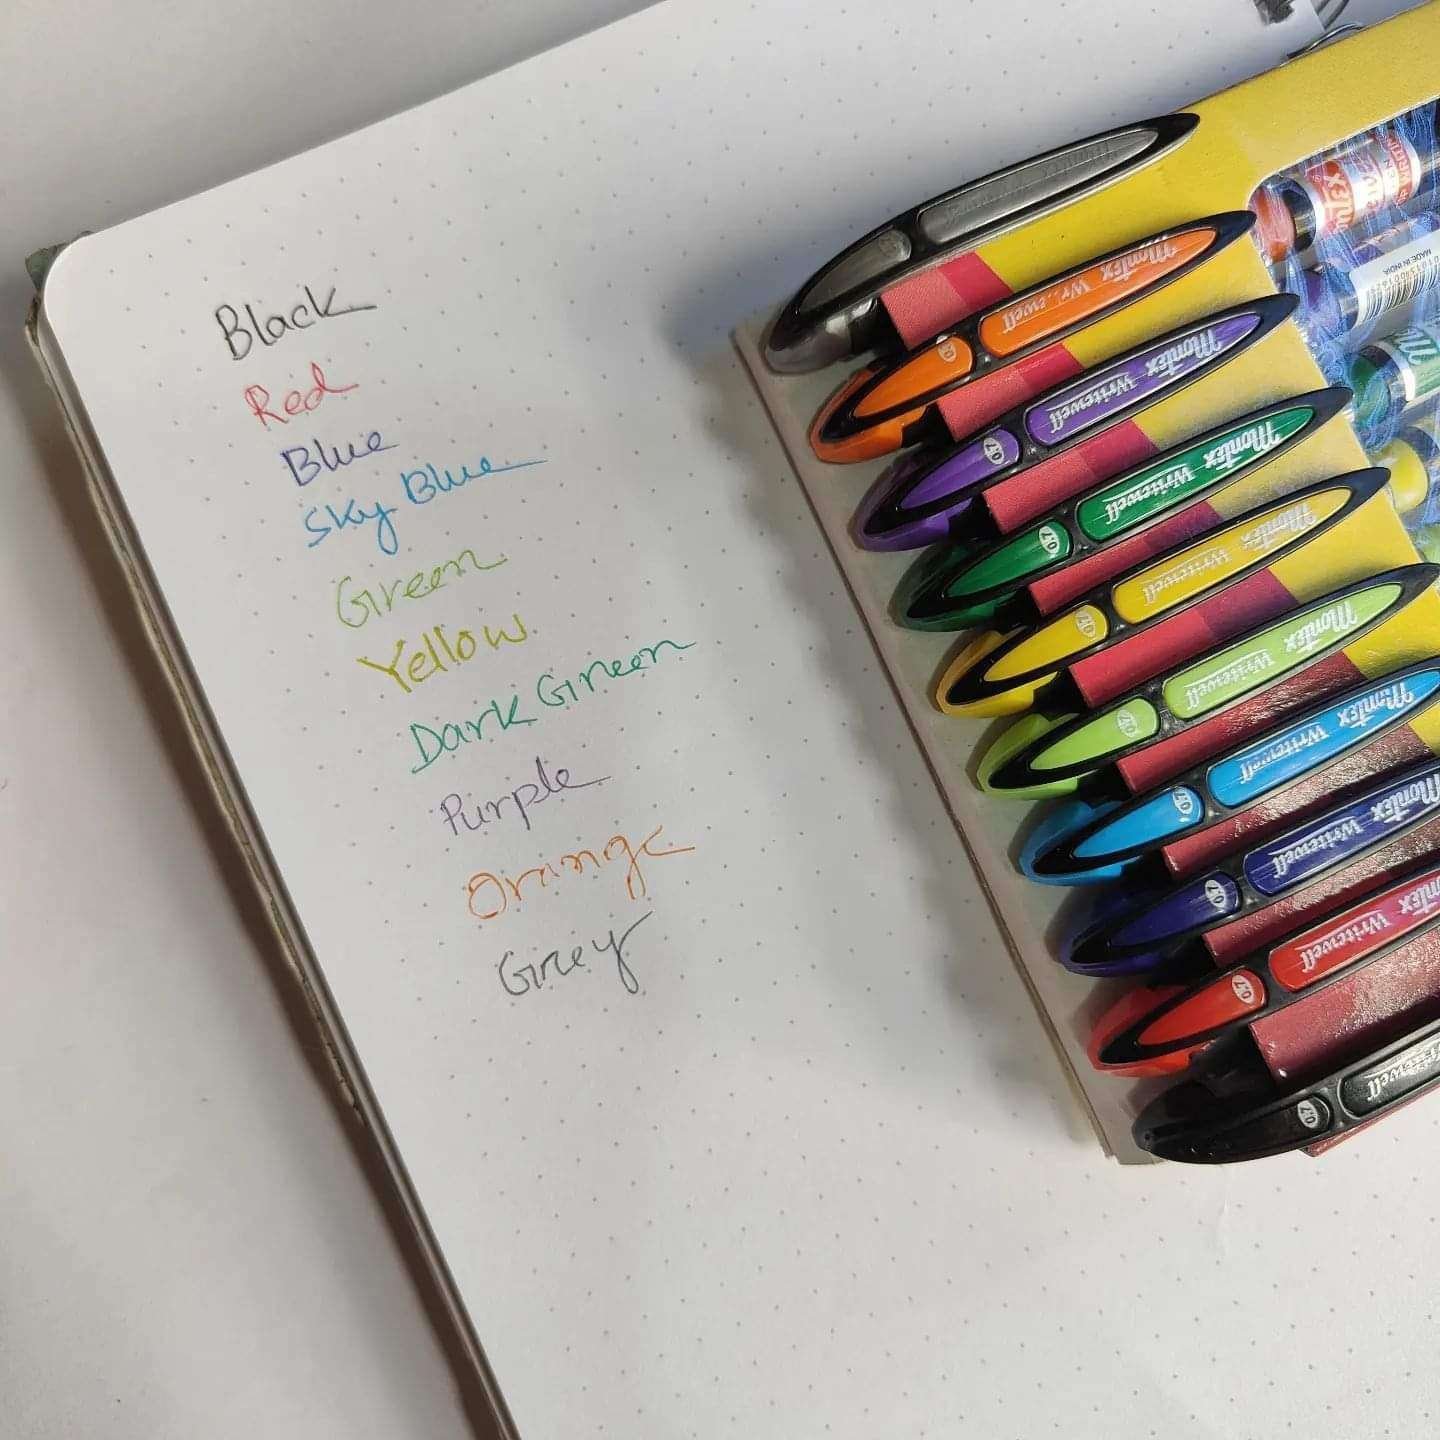 Black
Red
Blue
Sky Blue
Green
Yellow
Dark Green
Purple
Orange
Grey
montex Writewell 0.7
montex Writewell 0.7
montex Writewell 0.7
montex Writewell 0.7
montex Writewell 0.7
montex Writewell 0.7
montex Writewell 0.7
montex Writewell 0.7
Writewell 0.7
MADE IN INDIA